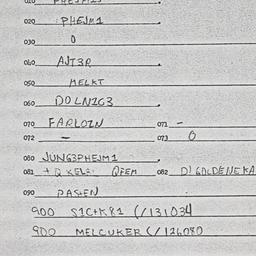 020 PHEJM1
030 0
040 AJT3R
050 MELKT
060 DOLNZG3
070 FARLOZN 071 -
072 - 073 0
080 JUNG3PHEJM1
081 + Q KEL QFEM 082 D! GOLDENE KA
090 PASEN
900 S1C+K81 (/131034
900 MELCUKER (/126080